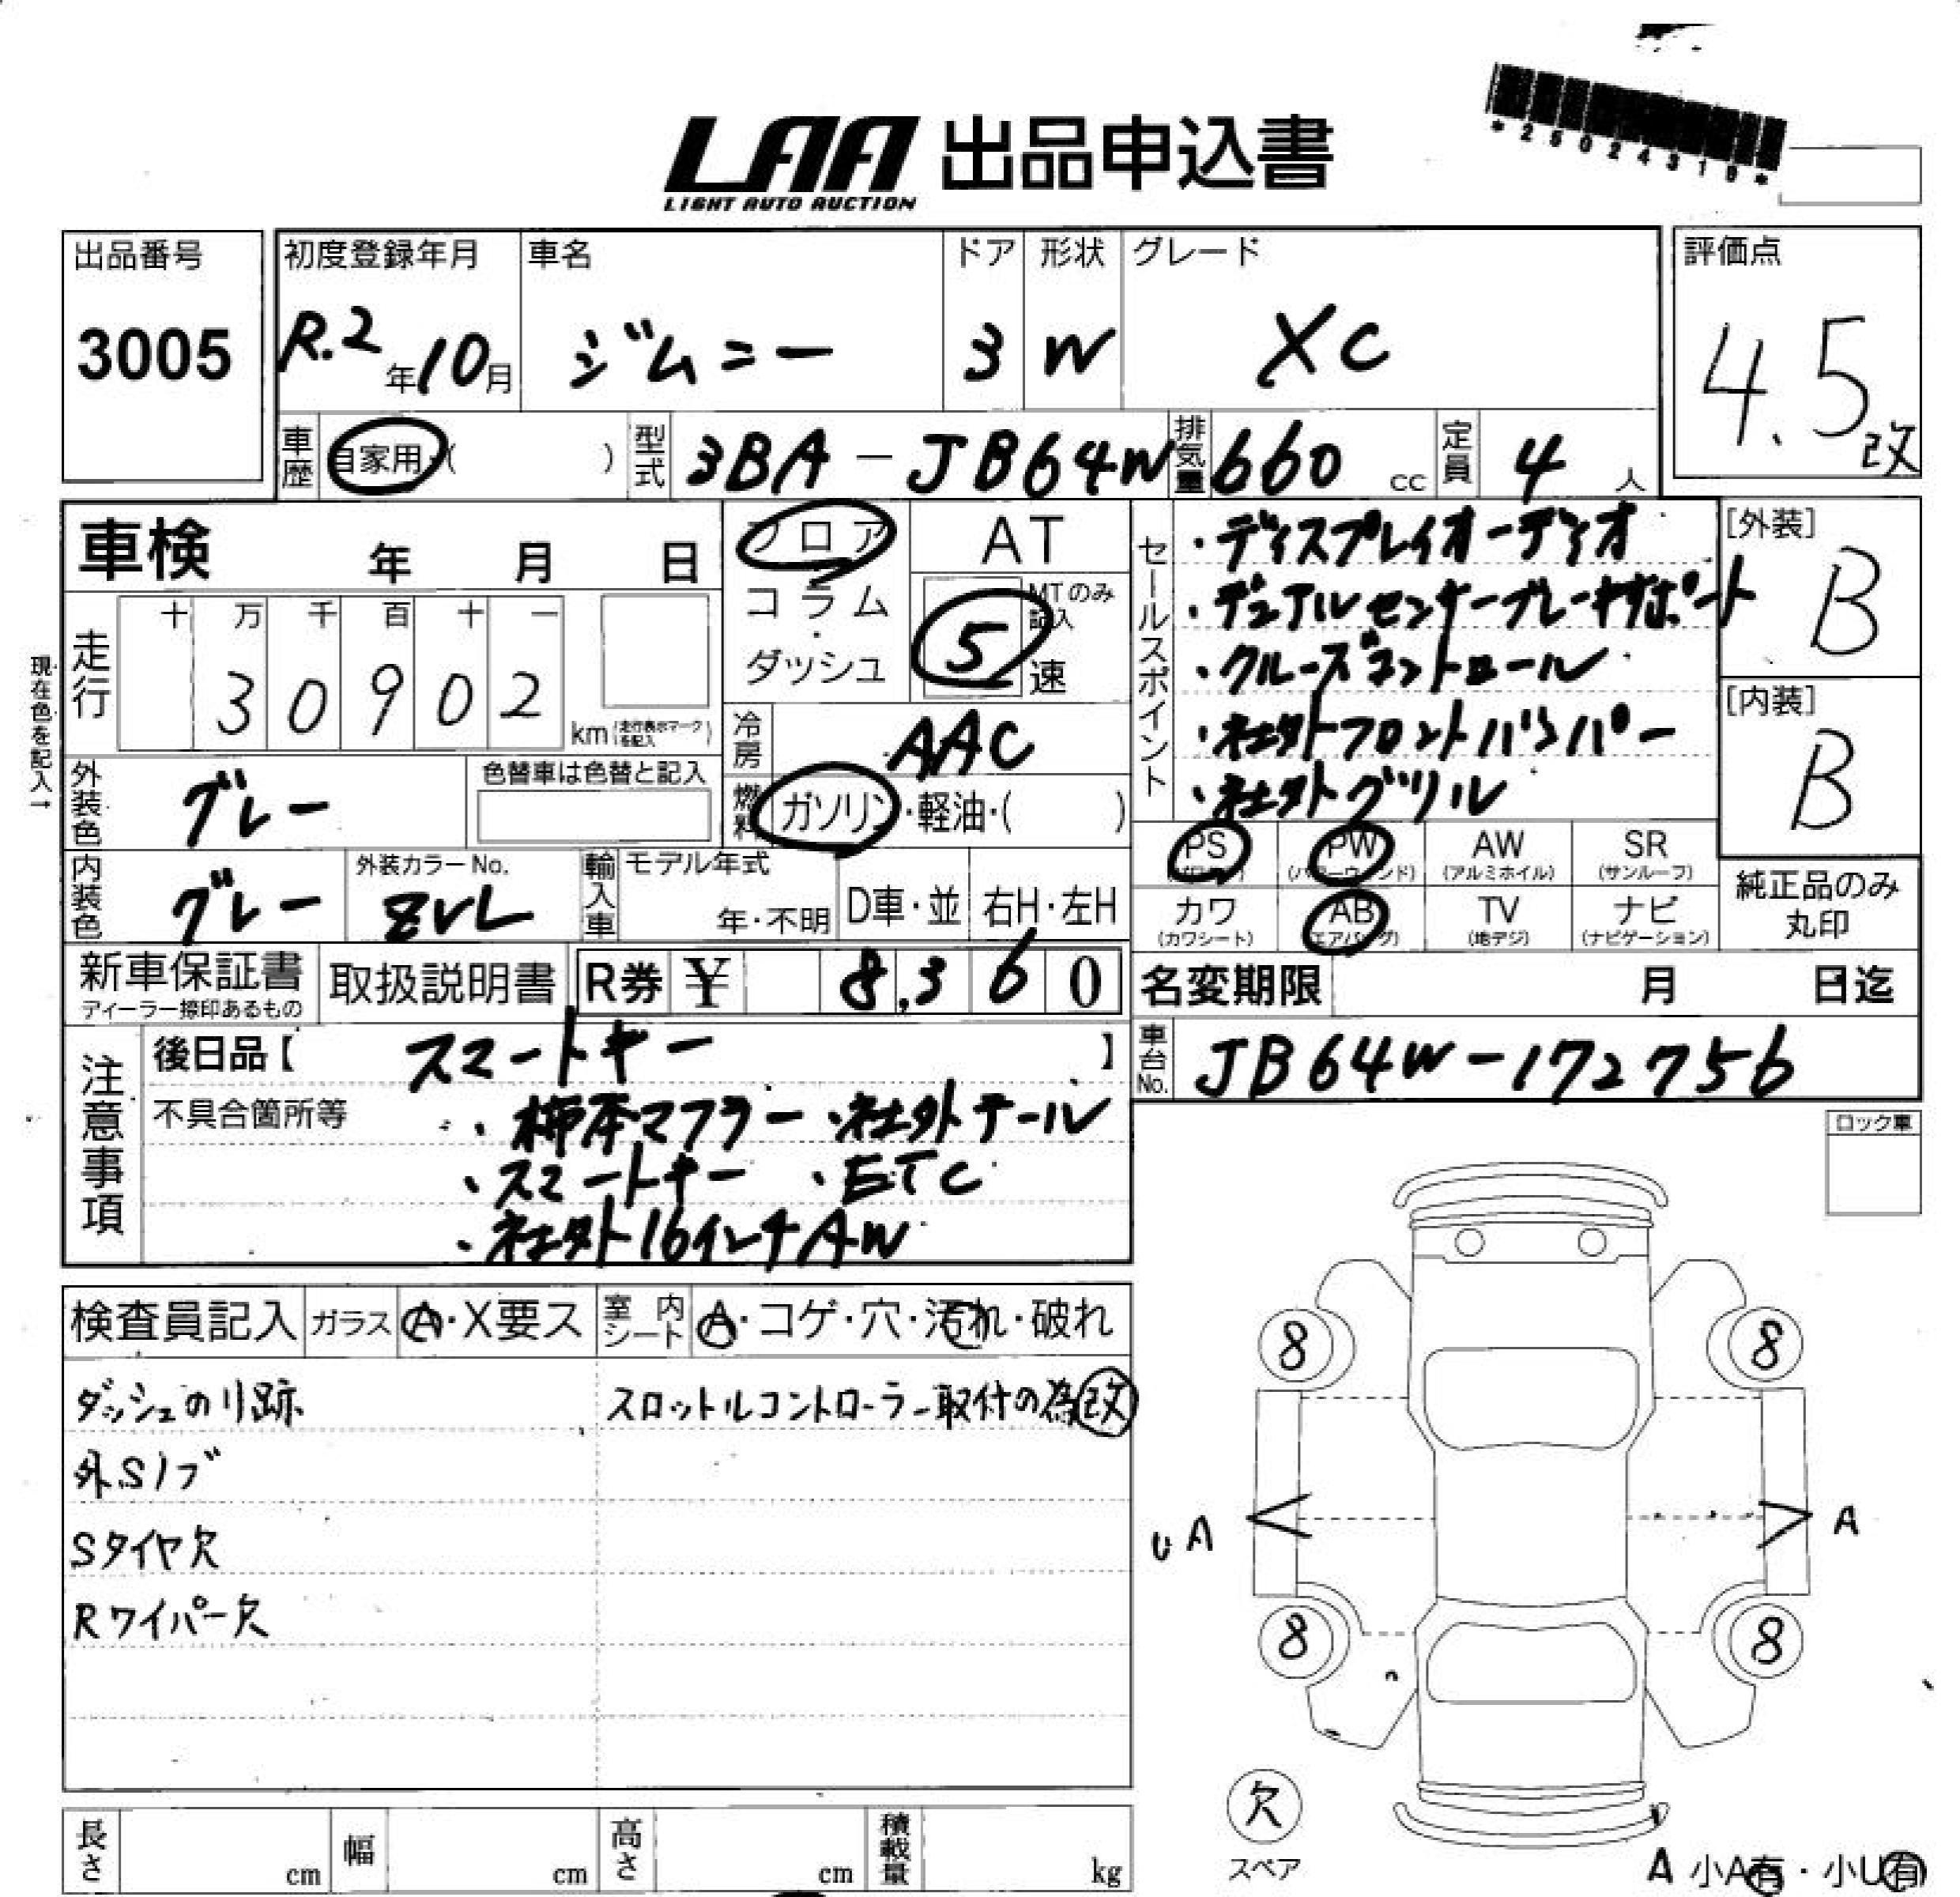 *25024310*
LAA 出品申込書
LIGHT AUTO AUCTION
出品番号 3005
初度登録年月 R.2年10月
車名 ジムニー
ドア 3
形状 W
グレード XC
評価点 4.5 改
車歴 自家用・( )
型式 3BA-JB64W
排気量 660 cc
定員 4 人
車検 年 月 日
フロア・コラム・ダッシュ
AT
MTのみ記入 5 速
走行 十 万 千 百 十 一
30902 km (走行表示マークを記入)
現在色を記入→
冷房 AAC
燃料 ガソリン・軽油・( )
外装色 グレー
色替車は色替と記入
内装色 グレー
外装カラーNo. ZVL
輸入車 モデル年式 年・不明 D車・並 右H・左H
セールスポイント
・ディスプレイオーディオ
・デュアルセンサーブレーキサポート
・クルーズコントロール
・社外フロントバンパー
・社外グリル
[外装] B
[内装] B
PS PW (パワーウィンド) AW (アルミホイル) SR (サンルーフ)
カワ (カワシート) AB (エアバッグ) TV (地デジ) ナビ (ナビゲーション)
純正品のみ丸印
新車保証書 ディーラー捺印あるもの
取扱説明書
R券 ¥ 8,360
名変期限 月 日迄
車台No. JB64W-172756
注意事項
後日品【 スマートキー 】
不具合箇所等 ・柿本マフラー ・社外テール
・スマートキー ・ETC
・社外16インチAW
ロック車
検査員記入 ガラス A・X要ス 室内シート A・コゲ・穴・汚れ・破れ
ダッシュのり跡
スロットルコントローラー取付の為改
外Sノブ
Sタイヤ欠
Rワイパー欠
8 8
UA A
8 8
欠
スペア
A 小A有・小U有
長さ cm 幅 cm 高さ cm 積載量 kg